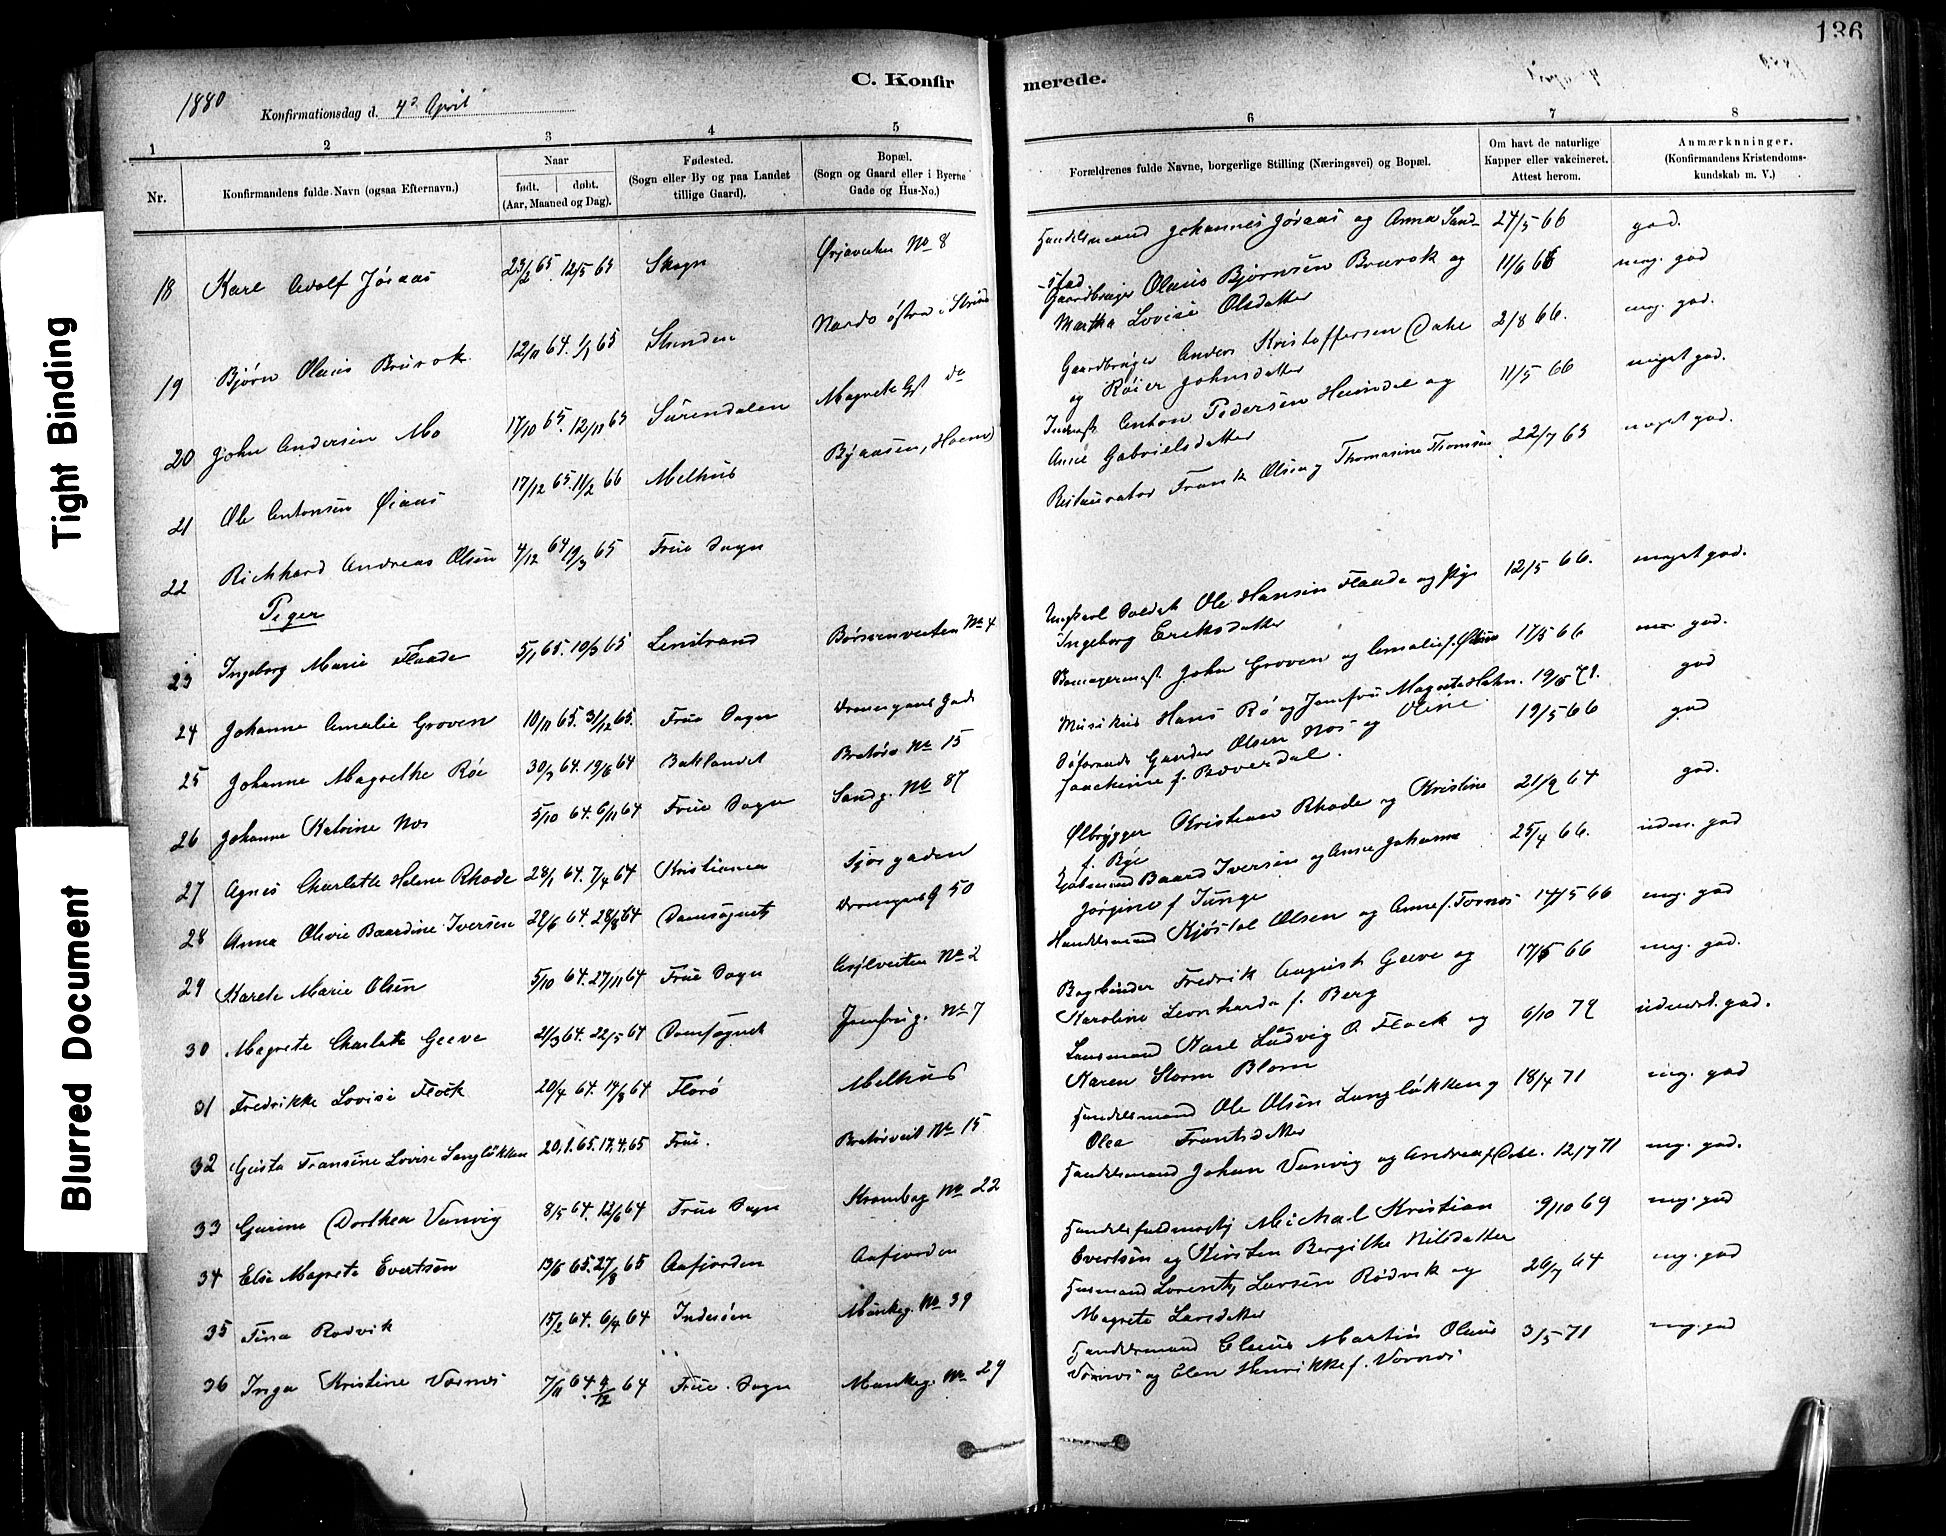 136
C. Konfirmerede.
1880 Konfirmationsdag d. 4de April
1 2 3 4 5 6 7 8
Nr. Konfirmandens fulde Navn (ogsaa Efternavn.) Naar født. døbt. (Aar, Maaned og Dag). Fødested. (Sogn eller By og paa Landet tillige Gaard). Bopæl. (Sogn og Gaard eller i Byerne Gade og Hus-No.) Forældrenes fulde Navne, borgerlige Stilling (Næringsvei) og Bopæl. Om havt de naturlige Kapper eller vakcineret. Attest herom. Anmærkninger. (Konfirmandens Kristendomskundskab m. V.)
18 Karl Adolf Jøraas 23/2 65. 12/5 65 Skogn No 8 Handelsmand Johannes Jøraas og Anna Sand- 27/5 66 god.
-stad
19 Bjørn Olaus Brurok 12/11 64. 1/1 65 Strinden Nardo østra i Strind Gaardbruger Olaus Bjørnsen Brurok og 11/6 66 meg. god
Martha Lovise Olsdatter
20 John Andersen Mo 17/10 65. 12/11 65 Surendalen Gaardbruger Anders Kristoffersen Dahl 2/8 66. mg. god.
og Røier Johnsdatter
21 Ole Antonsen Øiaas 17/12 65. 11/2 66 Melhus Byaasen, Anton Pedersen Heimdal og 11/5 66 meget god.
Anne Gabrielsdatter
22 Richard Andreas Olsen 4/12 64 19/3 65 Frue Sogn Restauratør Frank Olsen og Thomasine Thomsen 22/7 65 meget god.
Piger
23 Ingeborg Marie Flaade 5/1 65. 10/3 65 Lenstrand No 4 Ole Hansen Flaade og 12/5 66. meget god.
Ingeborg Eriksdatter
24 Johanne Amalie Groven 10/11 65. 31/12 65. Frue Sogn John Groven og Amalie f. Olsen 17/5 66 god.
25 Johanne Magrethe Røe 30/3 64. 19/6 64 Baklandet No 15 Musikus Hans Rø og Jomfru Magrete Hahn. 19/5 71. god
26 Johanne Katrine Nos 5/10 64. 6/11 64 Frue Sogn Sandg. No 87 Gunder Olsen Nos og Oline 19/5 66 god
Joackime f. Bøverdal.
27 Agnes Charlotte Helene Rhode 28/1 64. 7/4 64 Kristiania Ølbrygger Kristian Rhode og Kristine 21/9 64 god.
f. Rye
28 Anna Olivie Baardine Iversen 29/6 64. 28/8 64 Domsognets 50 Kjøbmand Baard Iversen og Anne Johanna 25/4 66. udm. god
Jørgine f. Junge
29 Karele Marie Olsen 5/10 64. 27/11 64 Frue Sogn Asylveiten No 2 Handelsmand Kjøstol Olsen og Anne f. Fornes 14/5 66 mg. god
30 Magrete Charlotte Geeve 21/3 64. 22/5 64 Domsognet Jomfrug. No 7 Bogbinder Fredrik August Geeve og 17/5 66 mg. god.
Karoline Leonharda f. Berg
31 Fredrikke Lovise Flock 20/4 64. 14/8 64 Florø Melhus Lensmand Karl Ludvig O Flock og 6/10 79 udmerk. god.
Karen Storm Blom
32 Gusta Fransine Lovise Langløkken 20,1.65. 17,4,65 Frue. No 15 Handelsmand Ole Olsen Langløkken og 18/4 71 mg. god
Olea Frantsdatter
33 Gurine Dorthea Vanvig 8/5 64. 12/6 64 Frue Sogn Krambog No 22 Handelsmand Johan Vanvig og Andrea f. Dahl. 12/7 71 mg. god.
34 Else Magrete Evertsen 13/6 65. 27/8 65 Aafjorden Aafjorden Michal Kristian 9/10 69 mg. god
Evertsen og Kirsten Bergitte Nilsdatter
35 Tina Rodvik 15/2 64. 6/4 64 Inderøen Munkeg. No 39 Husmand Lorents Larsen Rødvik og 26/7 64 mg. god
Magrete Larsdatter
36 Inga Kristine Vornes 7/11 64. 4/12 64 Frue Sogn Munkeg. No 29 Handelsmand Claus Martin Olaus 3/5 71 mg. god
Vornes og Elen Henrikke f. Vornes
Tight Binding
Blurred Document